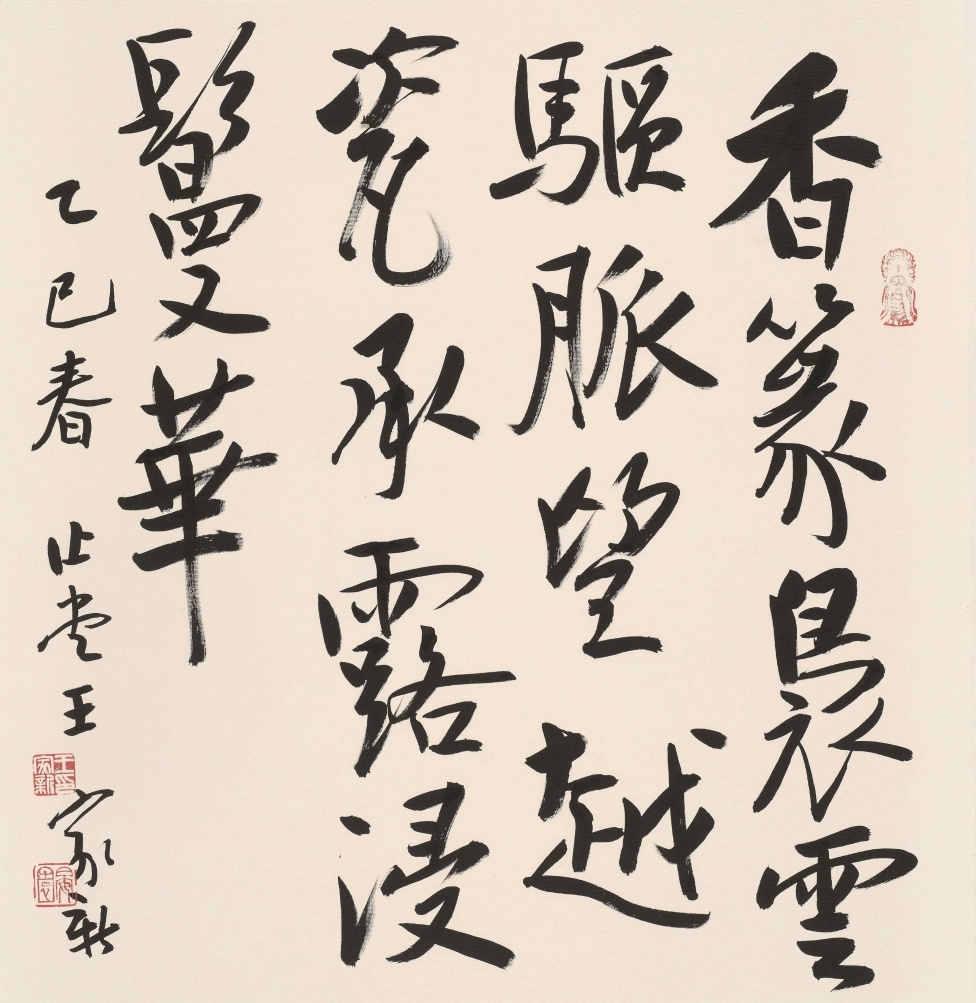 香篆裊雲
驅脈望越
瓷承露浸
鬘華
乙巳春 止堂王家新